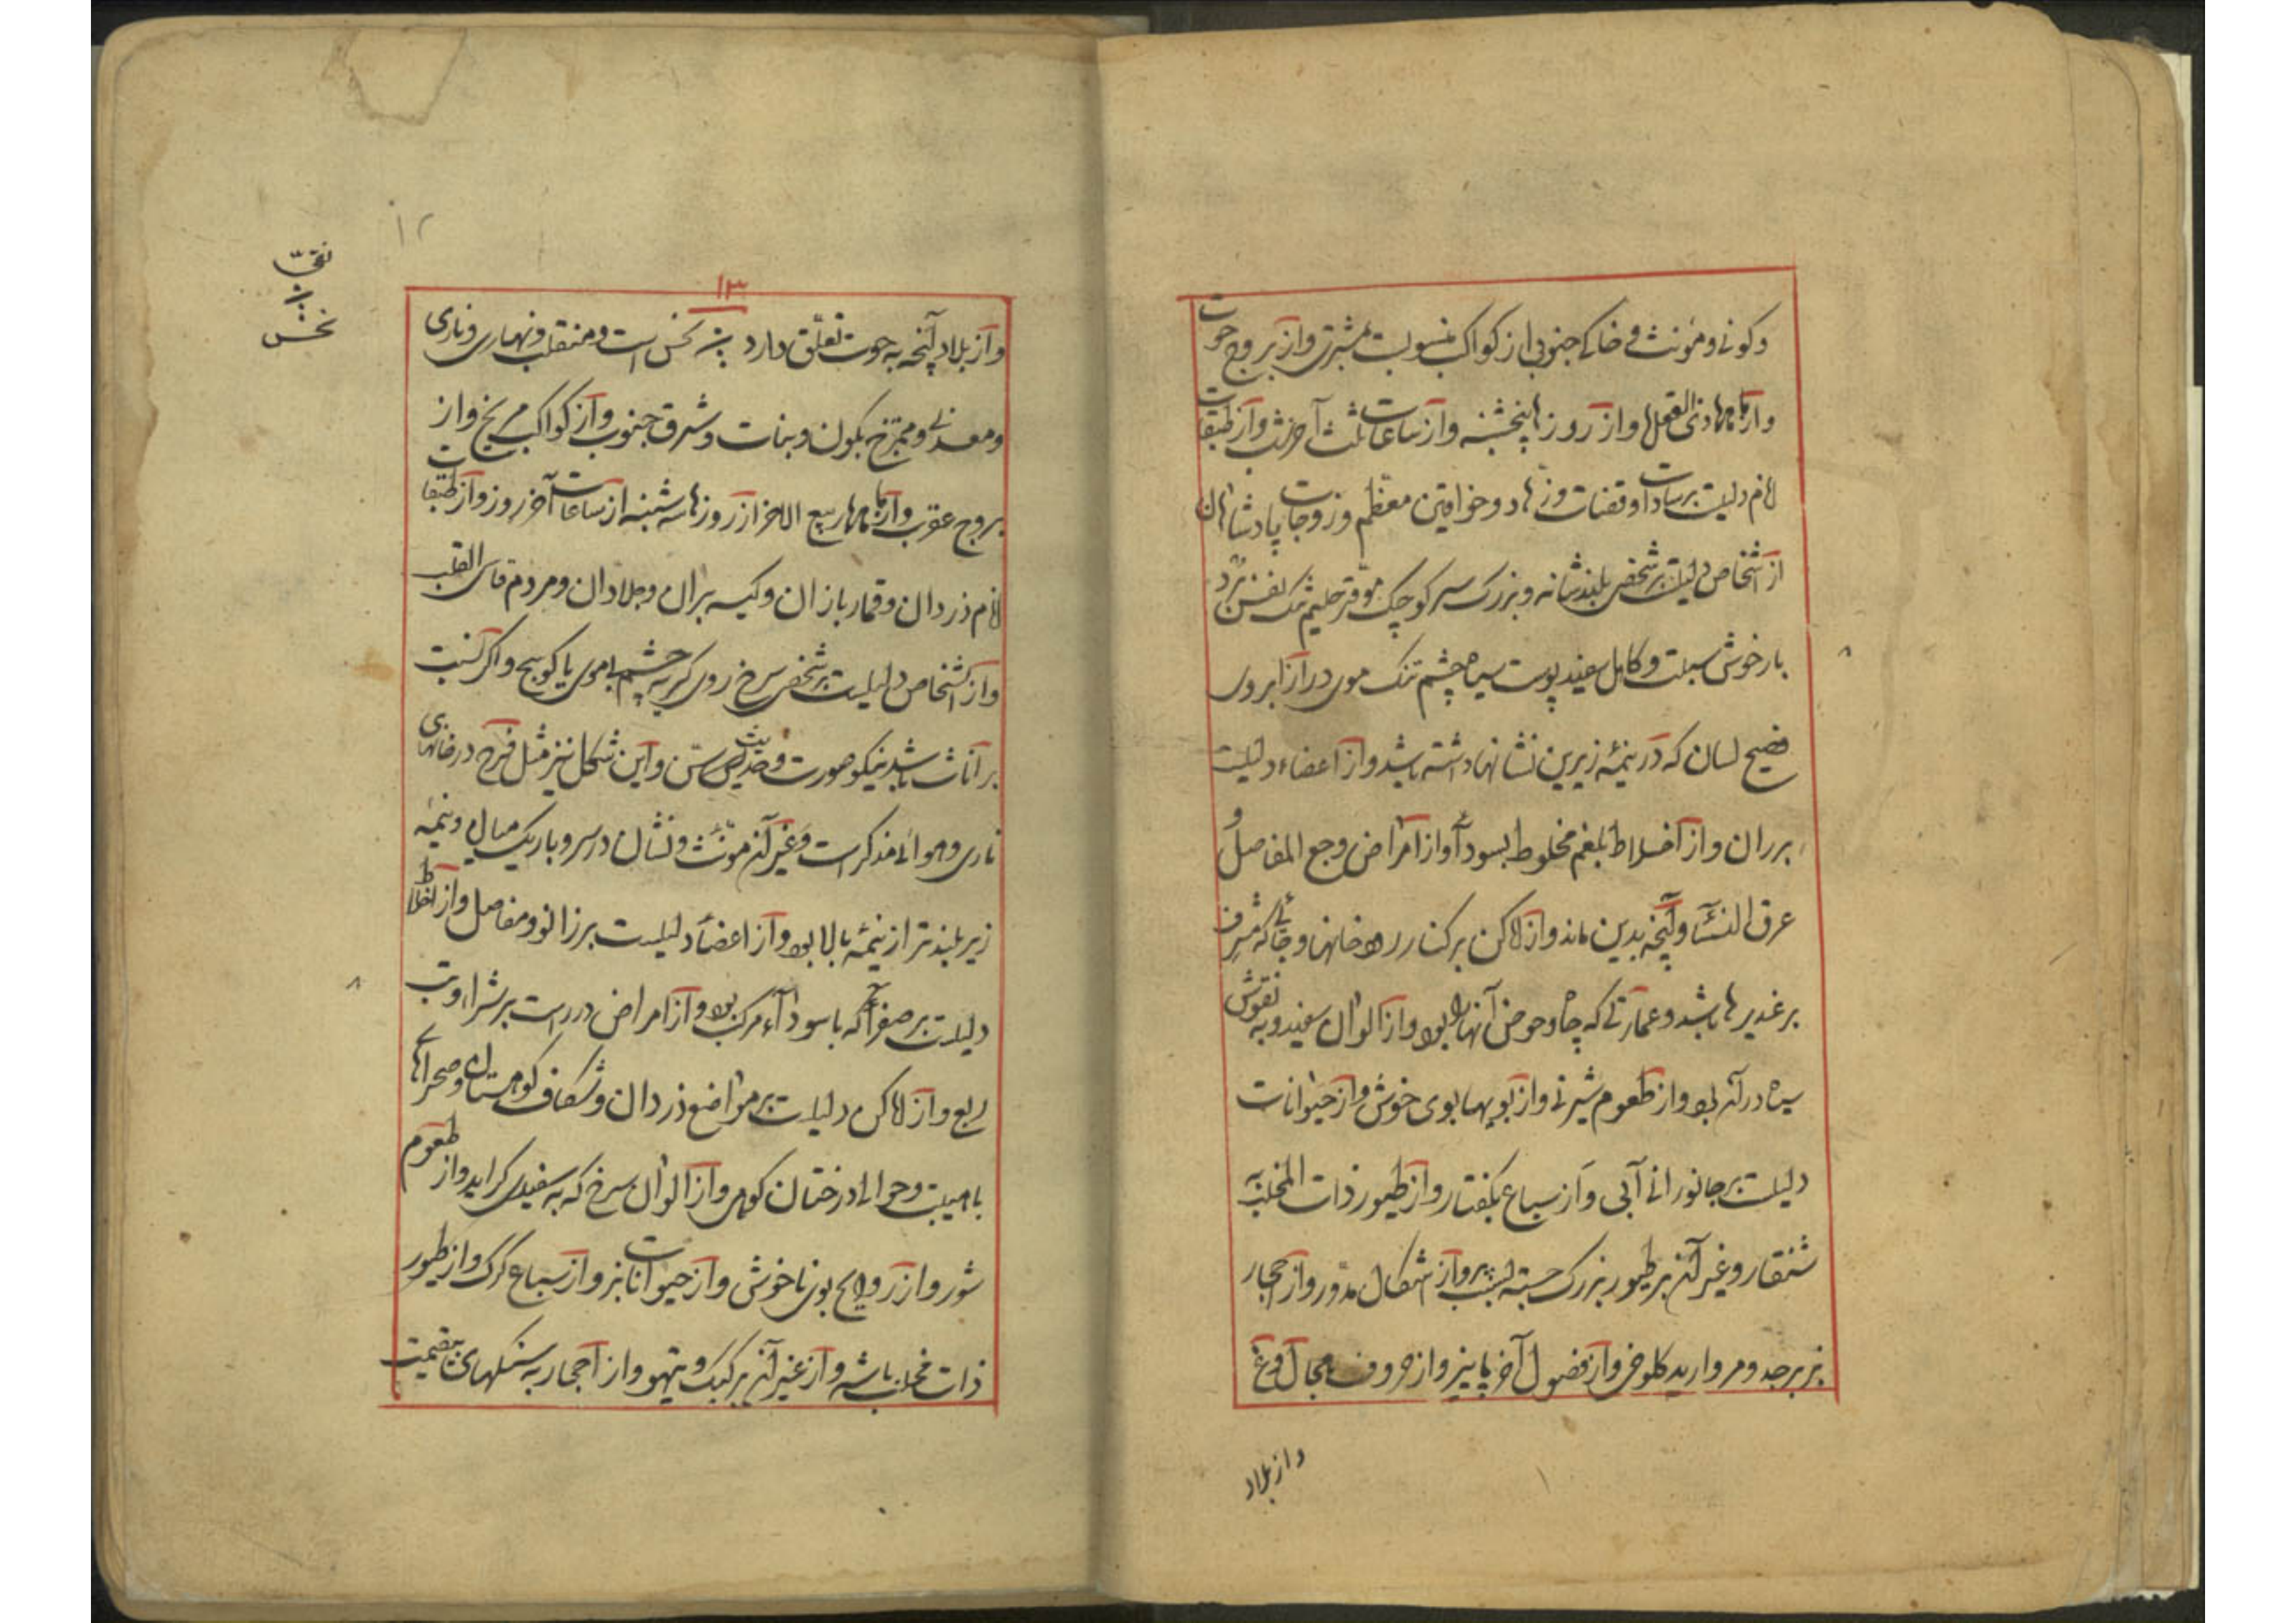 و مؤنث و خاکی جنوبی از کواکب منسوبست بمشتری و از بروج حوت
و از ماهها ذی القعد و از روزها پنجشنبه و از ساعات ثلث آخر شب و از طبقات
دلیلست بر سادات و قضات و زهاد و خواقین معظم و زوجات پادشاهان
از اشخاص دلیلست بر شخصی بلند شانه و بزرگ سر کوچک موقر حلیم
خوش سبلت و کامل سفید پوست سیاه چشم تنک موی دراز ابروی
فصیح لسان که در نیمهٔ زیرین نشانها داشته باشد و از اعضاء دلیلست
بر ران و از اخلاط بلغم مخلوط بسودا و از امراض وجع المفاصل و
عرق النسا و آنچه بدین ماند و از اماکن بر کنار رودخانها و جائی که مشرف
بر غدیرها باشد و عمارتی که چاه و حوض آنها بود و از الوان سفید و به نقوش
سیاه در آن بود و از طعوم شیرنی و از بویها بوی خوش و از حیوانات
دلیلست بر جانوران آبی و از سباع بکفتار و از طیور ذات المخلب
شنقار و غیر آن بر طیور بزرک جسته و از اشکال مدور و از احجار
بزبرجد و مروارید و از فصول آخر پاییز و از حروف
و از بلاد
۱۲
۱۳
نقی
نحس
و از بلاد آنچه به حوت تعلق دارد نحس است و منقلب و نهاری و ناری
و معدنی و ممتزج بکون و نبات و شرقی جنوب و از کواکب مریخ و از
بروج عقرب و از ماهها ربیع الاخر از روزها سه شنبه از ساعات آخر روز و از طبقات
دزدان و قماربازان و کیسه بران و جلادان و مردم قاسی القلب
و از اشخاص دلیلست بر شخصی سرخ روی کربه چشم موی یا کوسج و اکر نسبت
بر اناث باشد نیکو صورت و حدیث سن و این شکل نیز مثل فرح در خانهای
ناری و هوائی مذکر است و غیر آن مونث و نشان در سر و باریک میان و نیمهٔ
زیر بلندتر از نیمهٔ بالا بود و از اعضا دلیلست بر زانو و مفاصل و از اخلاط
دلیلست بر صفرا که با سوداء مرکب بود و از امراض
ربع و از اماکن دلیلست بر مواضع دزدان و شکاف کوهستان و صحراها
با هیبت و حوالی درختان کوهی و از الوان سرخ که به سفیدی کراید و از طعوم
شور و از روایح بوی ناخوش و از حیوانات بز و از سباع کرک و از طیور
ذات مخلب باشه و از غیر آن بر کبک و تیهو و از احجار به سنکهای بیقیمت